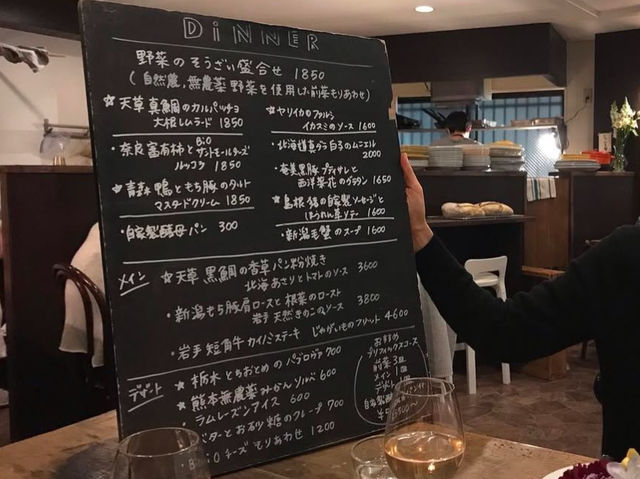 DiNNER
野菜のそうざい盛合せ 1850
(自然農、無農薬野菜を使用した前菜もりあわせ)
☆天草真鯛のカルパッチョ
大根レムラード 1850
・奈良富有柿と Bio サントモールチーズ
ルッコラ 1850
☆青森 鴨ともち豚のタルト
マスタードクリーム 1850
・自家製酵母パン 300
☆ヤリイカのファルシ
イカスミのソース 1600
・北海道真ダラ白子のムニエル
2000
・奄美黒豚ブティサレと
西洋菜花のグラタン 1650
☆島根 猪の自家製ソーセージと
ほうれん草ソテー 1600
・新潟毛蟹のスープ 1600
メイン
☆天草 黒鯛の香草パン粉焼き
北海あさりとトマトのソース 3600
・新潟もち豚肩ロースと根菜のロースト
岩手 天然きのこのソース 3800
・岩手 短角牛 カイノミステーキ じゃがいものフリット 4600
デザート
☆栃木とちおとめのパブロヴァ 700
☆熊本無農薬みかんソルベ 600
ラムレーズンアイス 600
バターとお砂糖のクレープ 700
Bio チーズもりあわせ 1200
おすすめ
プリフィックスコース
前菜 3皿
メイン 1皿
デザート 1皿
自家製酵母パン付